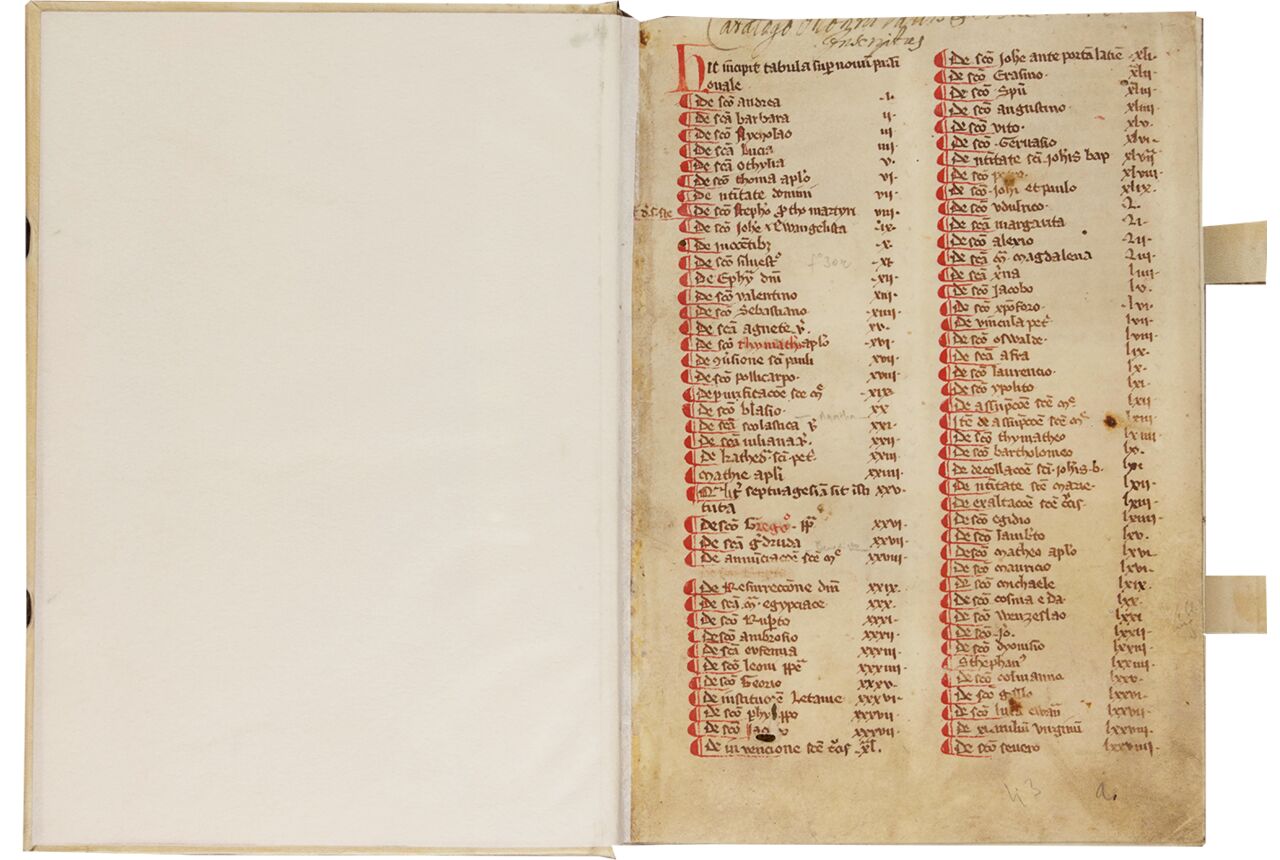 inscriptas
Hic incipit tabula sup nouu passi
onale
De sco andrea .i.
De sca barbara ii.
De sco Nycholao iii.
De sca lucia iiii.
De sca othylia v.
De sco thoma aplo vi.
De ntitate domini vii.
De sco stepho pthomartyri viii.
De sco Johe Ewangelista .ix.
De inocetib .x.
De sco siluest .xi.
De Ephy dni .xii.
De sco valentino xiii.
De sco Sebastiano .xiiii.
De sca agnete v. xv.
De sco thymatheo aplo .xvi.
De usione sci pauli xvii.
De sco pollicarpo. xviii.
De purificacoe sce m .xix.
De sco blasio. xx
De sca scolastica v xxi.
De sca iuliana v. xxii.
De kathed sci pet xxiii.
Mathie apli xxiiii.
sit isti xxv.
tuta
De sco Grego. pp xxvi.
De sca gdruda xxvii.
De annuciacoe sce m xxviii.
De Resurreccione dni xxix.
De sca m. egypciace xxx.
De sco Rupto xxxi.
De sco ambrosio xxxii.
De sca eufemia xxxiii.
De sco leoni ppe xxxiiii.
De sco Georio xxxv.
De instituoe Letanie xxxvi.
De sco phylippo xxxvii.
De sco xxxvii.
De invencione sce cis xl.
De sco Johe ante porta latie .xli.
De sco Erasmo. xlii.
De sco Spu xliii.
De sco augustino. xliiii.
De sco vito. xlv.
De sco Geruasio xlvi.
De ntitate sci johis bap xlvii.
De sco xlviii.
De sco johi et paulo xlix.
De sco vdulrico. L.
De sca margareta Li.
De sco alexio Lii.
De sca m magdalena Liii.
De sca xna liiii.
De sco Jacobo lv.
De sco xpoforo. lvi.
De vincula pet lvii.
De sco oswalde. lviii.
De sca afra lix.
De sco laurencio. lx.
De sco ypolito lxi.
De assupcoe sce m lxii
Ite de assupcoe sce m lxiii
De sco thymatheo lxiiii
De sco bartholomeo lx.
De decollacoe sci johis b. lxi.
De ntitate sce marie. lxii.
De exaltacoe sce cis lxiii.
De sco egidio lxiiii.
De sco lambto lxv.
De sco matheo aplo lxvi.
De sco mauricio lxvi.
De sco michaele lxix.
De sco cosma e da. lxx.
De sco wenzeslao lxxi
De sco jo. lxxii.
De sco dyonisio lxxiii.
Sthephan lxxiiii.
De sco colmanno lxxv.
De sco gallo lxxvi.
De sco luca ewan lxxvii.
De xi milium virginum lxxviii.
De sco seuero lxxviiii.
43 a.